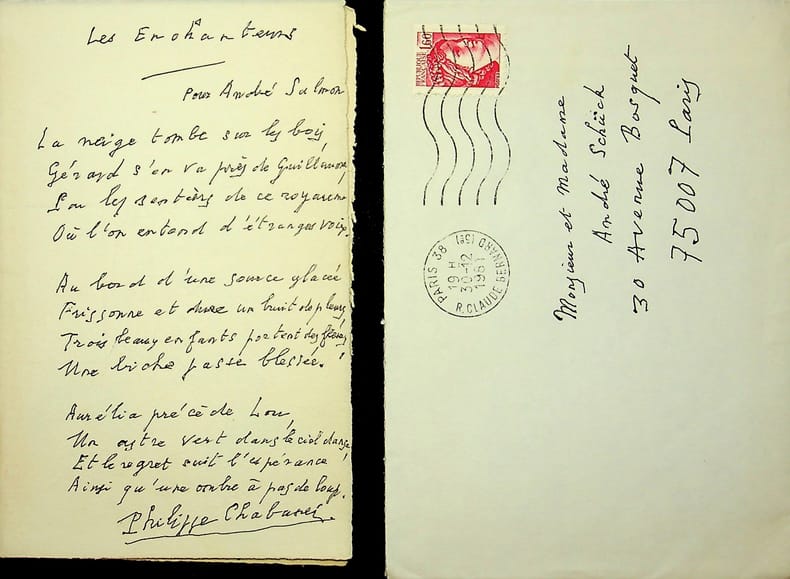 Les Enchanteurs
Pour André Salmon
La neige tombe sur les bois
Gérard s'en va près de Guillaume
Par les sentiers de ce royaume
Où l'on entend d'étranges voix.
Au bord d'une source glacée
Frissonne et dure un bruit de pleurs,
Trois beaux enfants portent des fleurs,
Une biche passe blessée.
Aurélia précède Lou,
Un astre vert dans le ciel danse
Et le regret suit l'espérance
Ainsi qu'une ombre à pas de loup.
Philippe Chabaneix
REPUBLIQUE FRANÇAISE
1,60
PARIS 38
19 H
30-12
1981
R. CLAUDE BERNARD (5E)
Monsieur et Madame
André Schück
30 Avenue Bosquet
75007 Paris